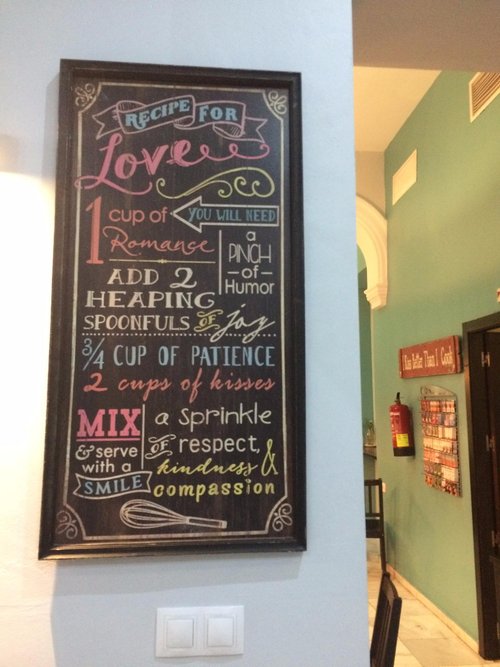 RECIPE FOR
Love
YOU WILL NEED
1 cup of
Romance
a
PINCH
-of-
Humor
ADD 2
HEAPING
SPOONFULS OF joy
3/4 CUP OF PATIENCE
2 cups of kisses
MIX
& serve
with a
SMILE
a sprinkle
OF respect,
kindness &
compassion
I Kiss Better Than I Cook